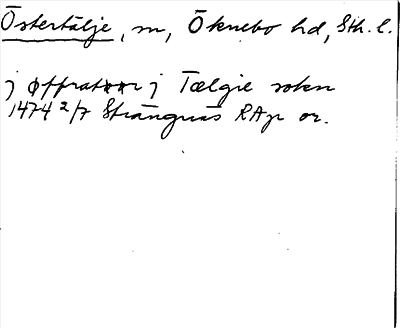 Östertälje, m, Öknebo hd, Sth. l.
j øffratxxr j Tælgie sokn
1474 2/7 Strängnäs RAp or.